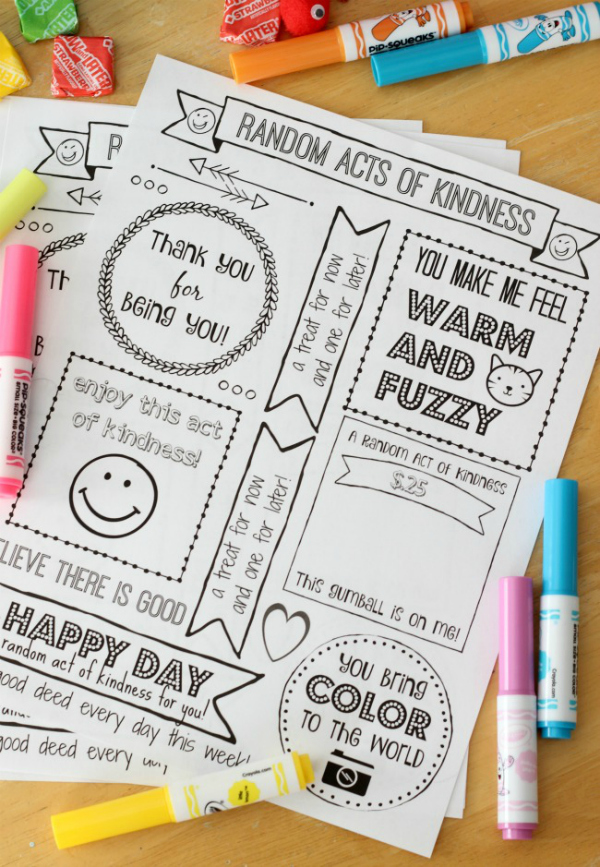 STARBURST
STRAWBERRY
PIP-SQUEAKS
PIP-SQUEAKS
RANDOM ACTS OF KINDNESS
R
THANK YOU
for
BEING YOU!
a treat for now
and one for later!
YOU MAKE ME FEEL
WARM
AND
FUZZY
TH
B
PIP-SQUEAKS
enjoy this act
of kindness!
a treat for now
and one for later!
A RANDOM ACT OF KINDNESS
$.25
THIS GUMBALL IS ON ME!
ELIEVE THERE IS GOOD
HAPPY DAY
random act of kindness for you!
good deed every day this week!
good deed every
YOU BRING
COLOR
TO THE WORLD
Crayola.com
Crayola